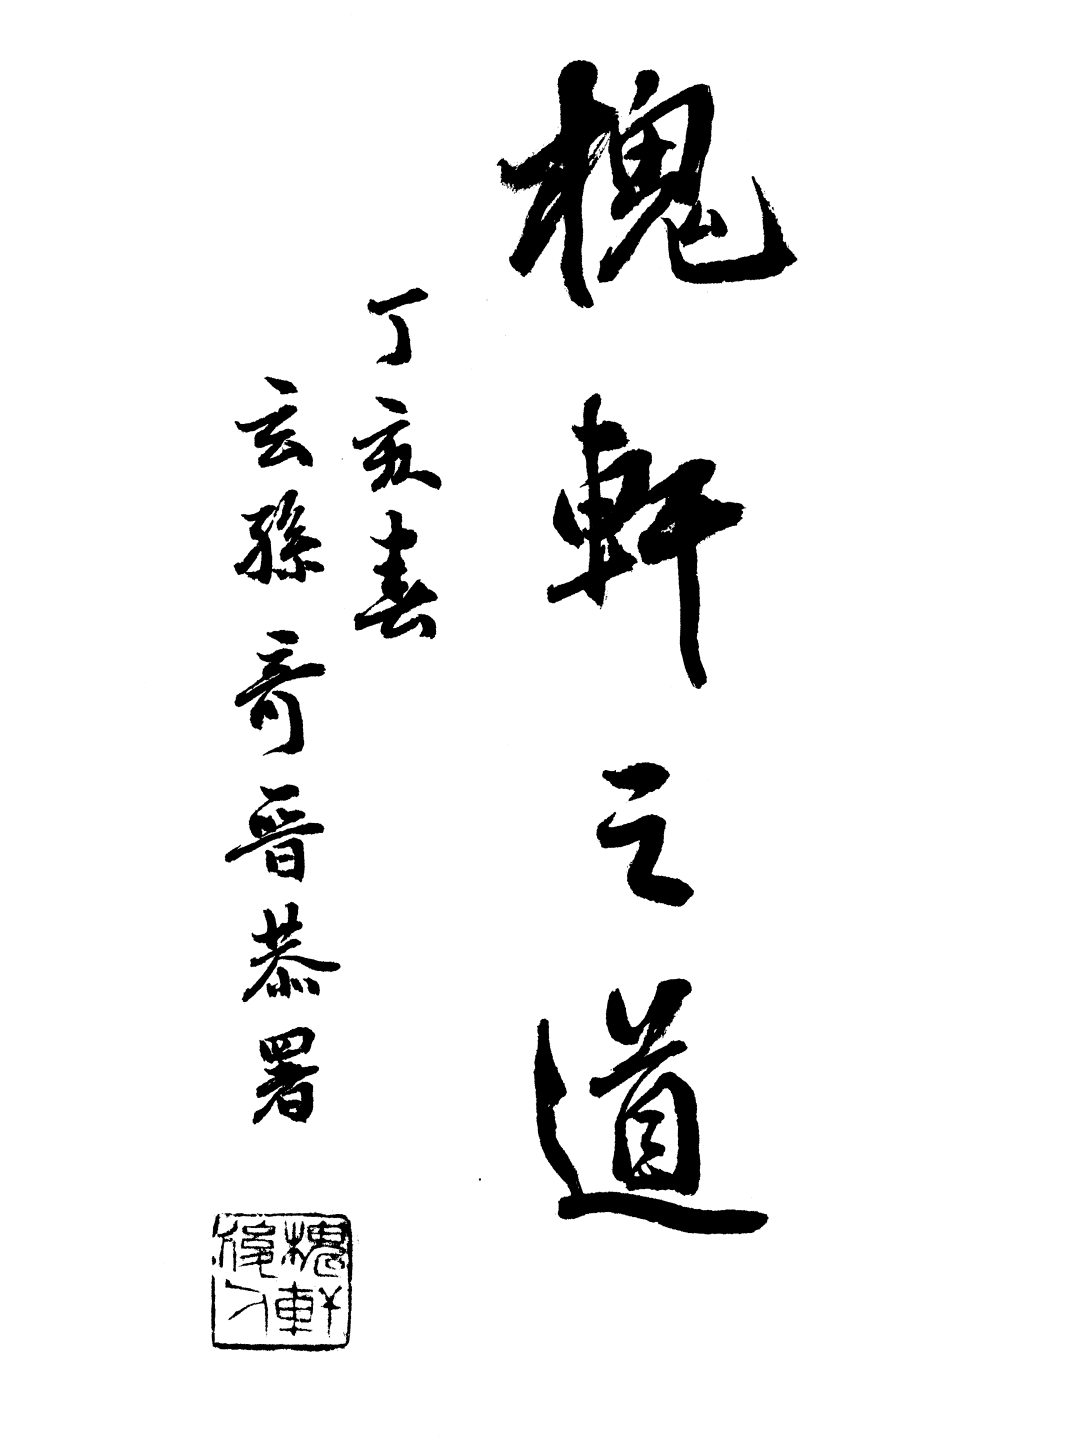 槐軒之道
丁亥春
玄孫奇晉恭署
槐軒後人